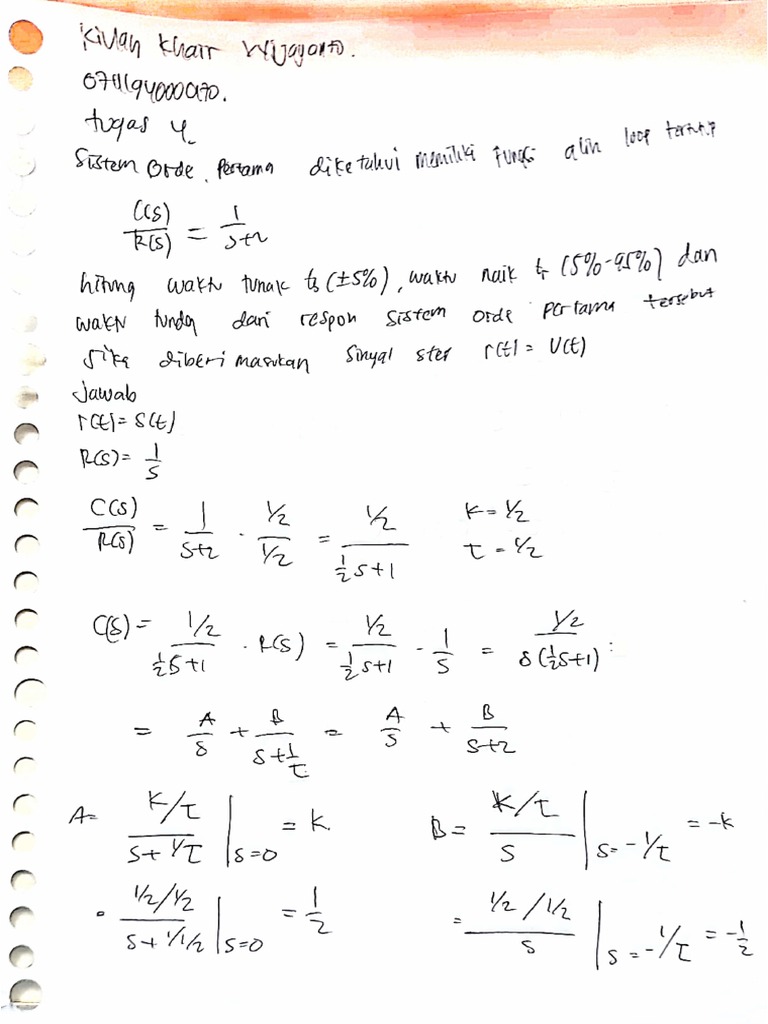 Kivlan Khair Wijayanto.
tugas 4
Sistem Orde Pertama diketahui memiliki fungsi alih loop tertutup
C(s)/R(s) = 1/s+2
hitung waktu tunak ts (±5%), waktu naik tr (5%-95%) dan
waktu tunda dari respon sistem orde pertama tersebut
Jika diberi masukan sinyal step r(t) = U(t)
Jawab
r(t) = S(t)
R(s) = 1/s
C(s)/R(s) = 1/s+2 . 1/2 / 1/2 = 1/2 / 1/2 s+1 K = 1/2
τ = 1/2
C(s) = 1/2 / 1/2 s+1 . R(s) = 1/2 / 1/2 s+1 - 1/s = 1/2 / s(1/2 s+1) :
= A/s + B/s+1/τ = A/s + B/s+2
A = K/τ / s+1/τ | s=0 = k B = K/τ / s | s=-1/τ = -k
= 1/2/1/2 / s+1/1/2 | s=0 = 1/2 = 1/2/1/2 / s | s=-1/τ = -1/2